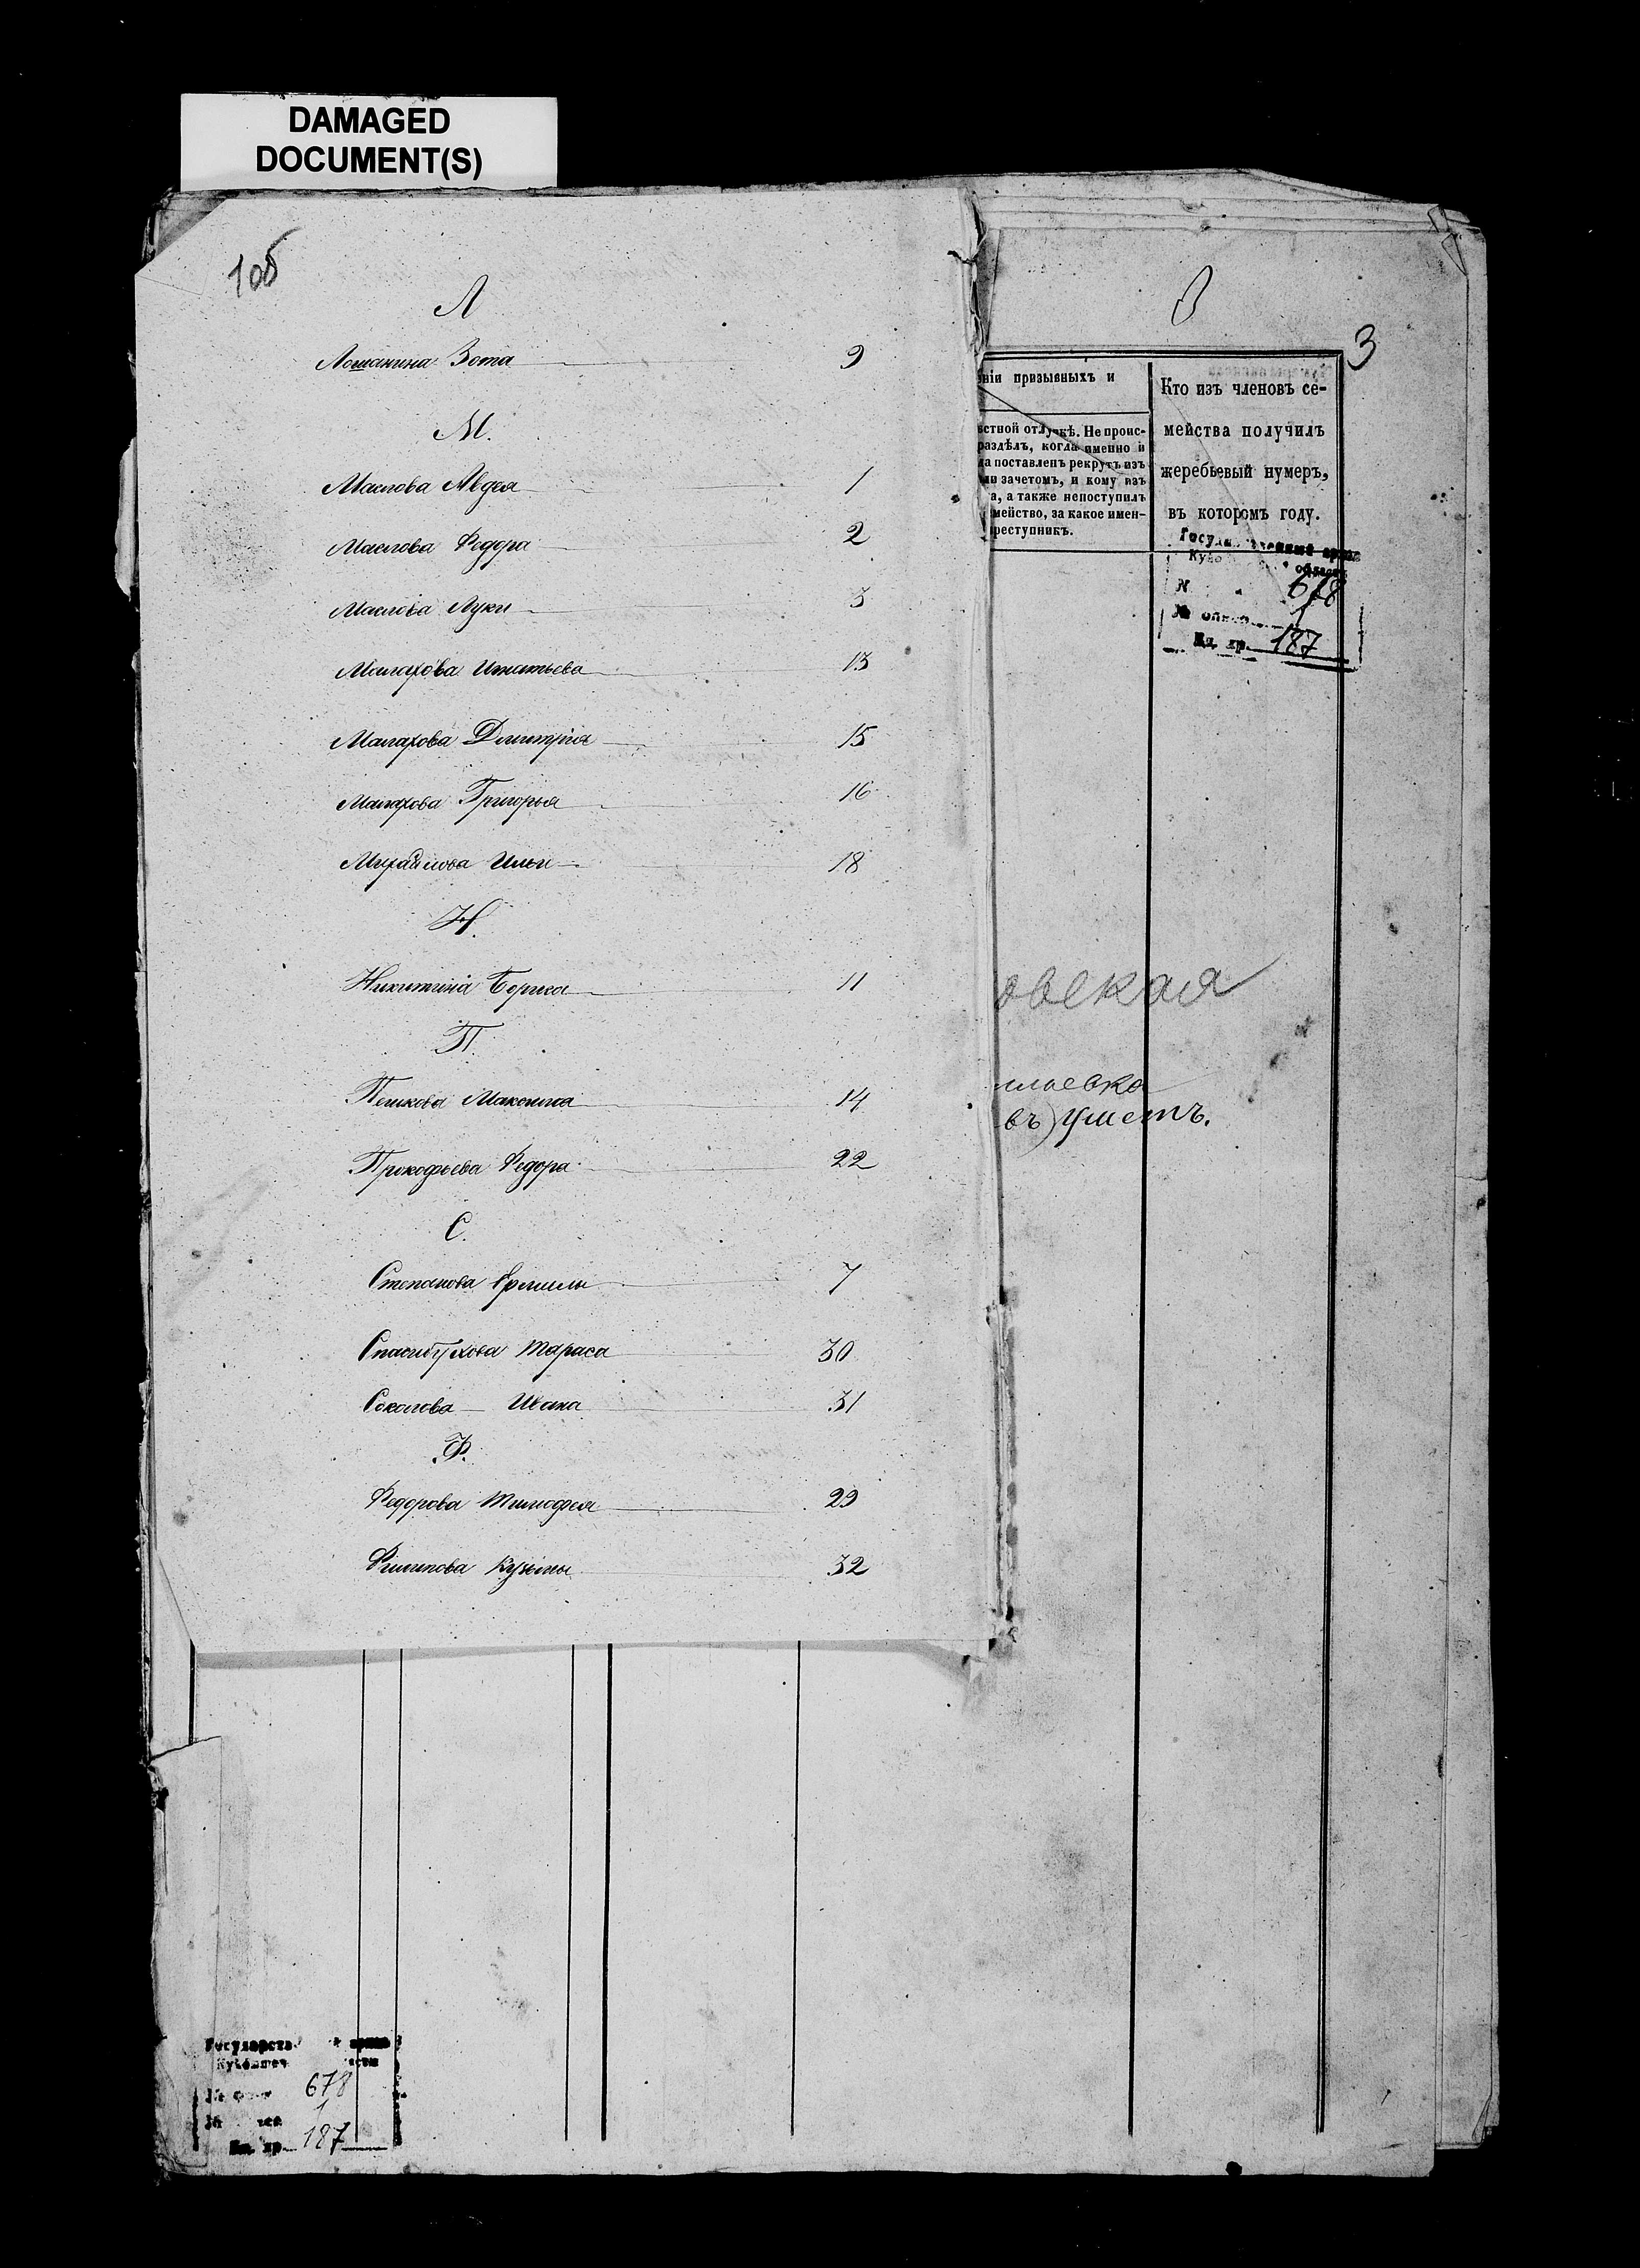 DAMAGED
DOCUMENT(S)
Л
Лошанина Зота 9
М.
Маслова Авдея 1
Маслова Федора 2
Маслова Луки 3
Малахова Игнатьева 13
Малахова Дмитрія 15
Малахова Григорья 16
Михайлова Ильи 18
Н.
Никитина Бориса 11
П.
Пешкова Максима 14
Прокофьева Федора 22
С.
Степанова Ермилы 7
Спасибухова Тараса 30
Соколова Ивана 31
Ф.
Федорова Тимофея 29
Филипова Кузьмы 32
3
ніи призывныхъ и
стной отлучкѣ. Не проис-
раздѣлъ, когда именно и
да поставленъ рекрутъ изъ
ли зачетомъ, и кому изъ
а, а также непоступилъ
мейство, за какое имен-
реступникъ.
Кто изъ членовъ се-
мейства получилъ
жеребьевый нумеръ,
въ которомъ году.
678
1
187
овская
лаевка
въ) уметъ.
678
1
187